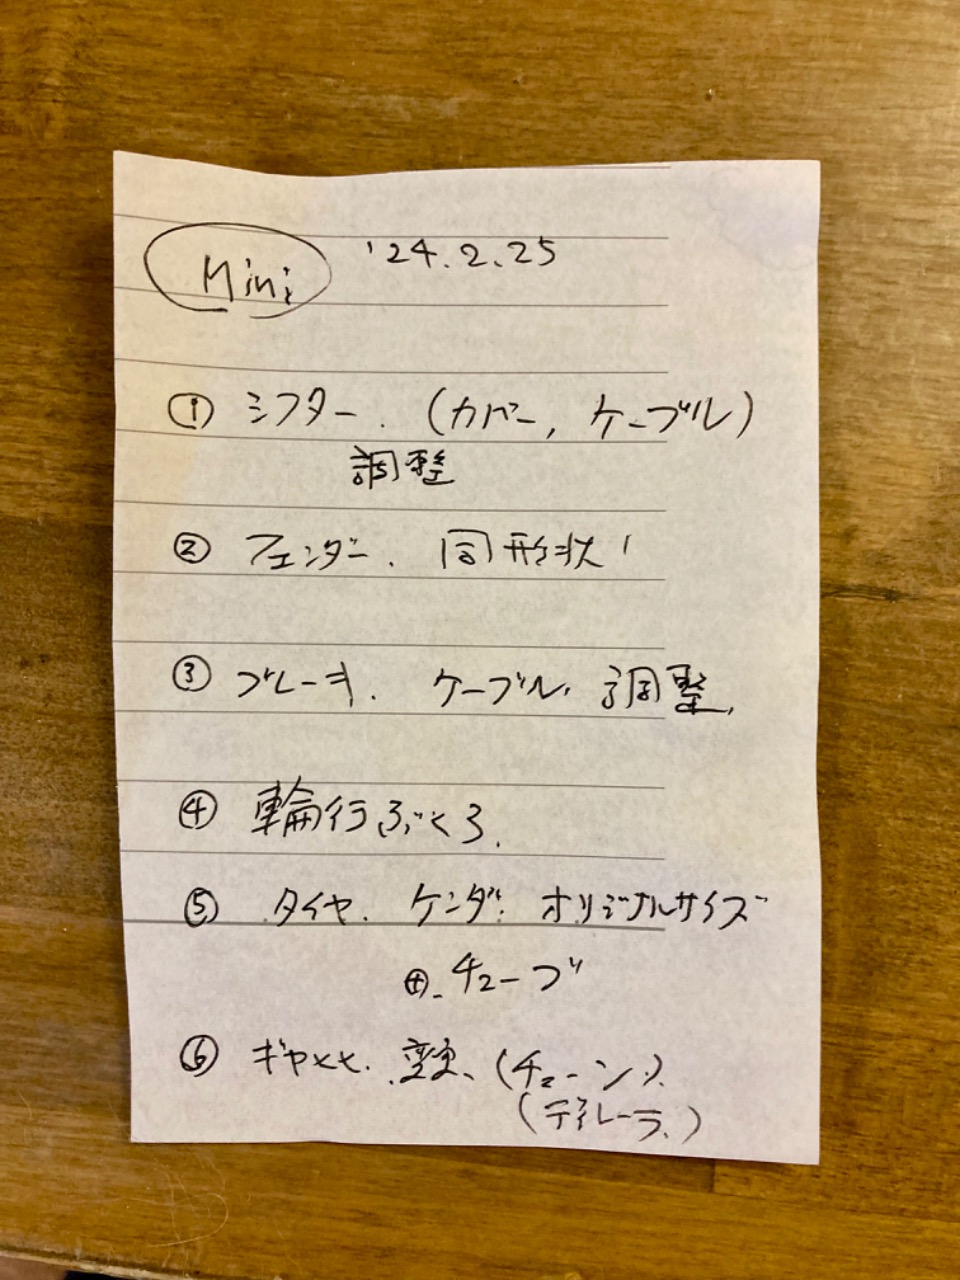 Mini '24.2.25
① シフター. (カバー, ケーブル)
調整
② フェンダー. 同形状!
③ ブレーキ. ケーブル. 調整.
④ 輪行ぶくろ.
⑤ タイヤ. ケンダ. オリジナルサイズ
⊕. チューブ
⑥ ギヤ比. 変更、(チェーン).
(デイレーラ.)